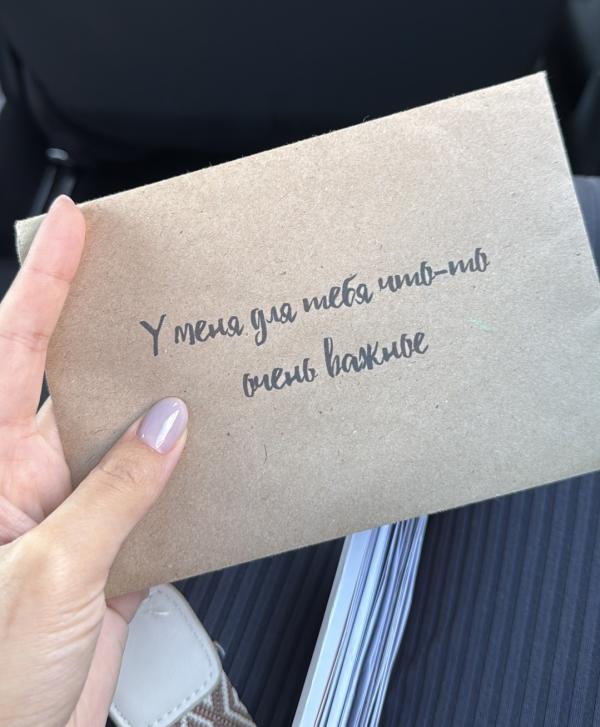 У меня для тебя что-то
очень важное